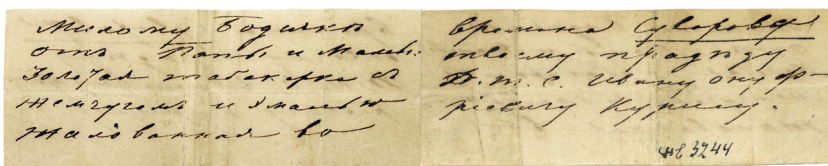 Милому
отъ Папы и Мамы:
Золотая табакерка съ
жемчугомъ и эмалью
жалованная во
времена Суворова
твоему прадѣду
Д. т. с. Ивану Онуф-
рiевичу Курису.
3244